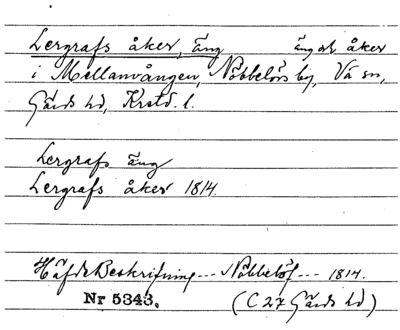 Lergrafs åker, äng äng och åker
i Mellanvången, Nöbbelövs by, Vä sn,
Gärds hd, Krstd. l.
Lergrafs äng
Lergrafs åker 1814.
Häfde Beskrifning --- Nöbbelöf --- 1814.
Nr 5343. (C 27 Gärds hd)